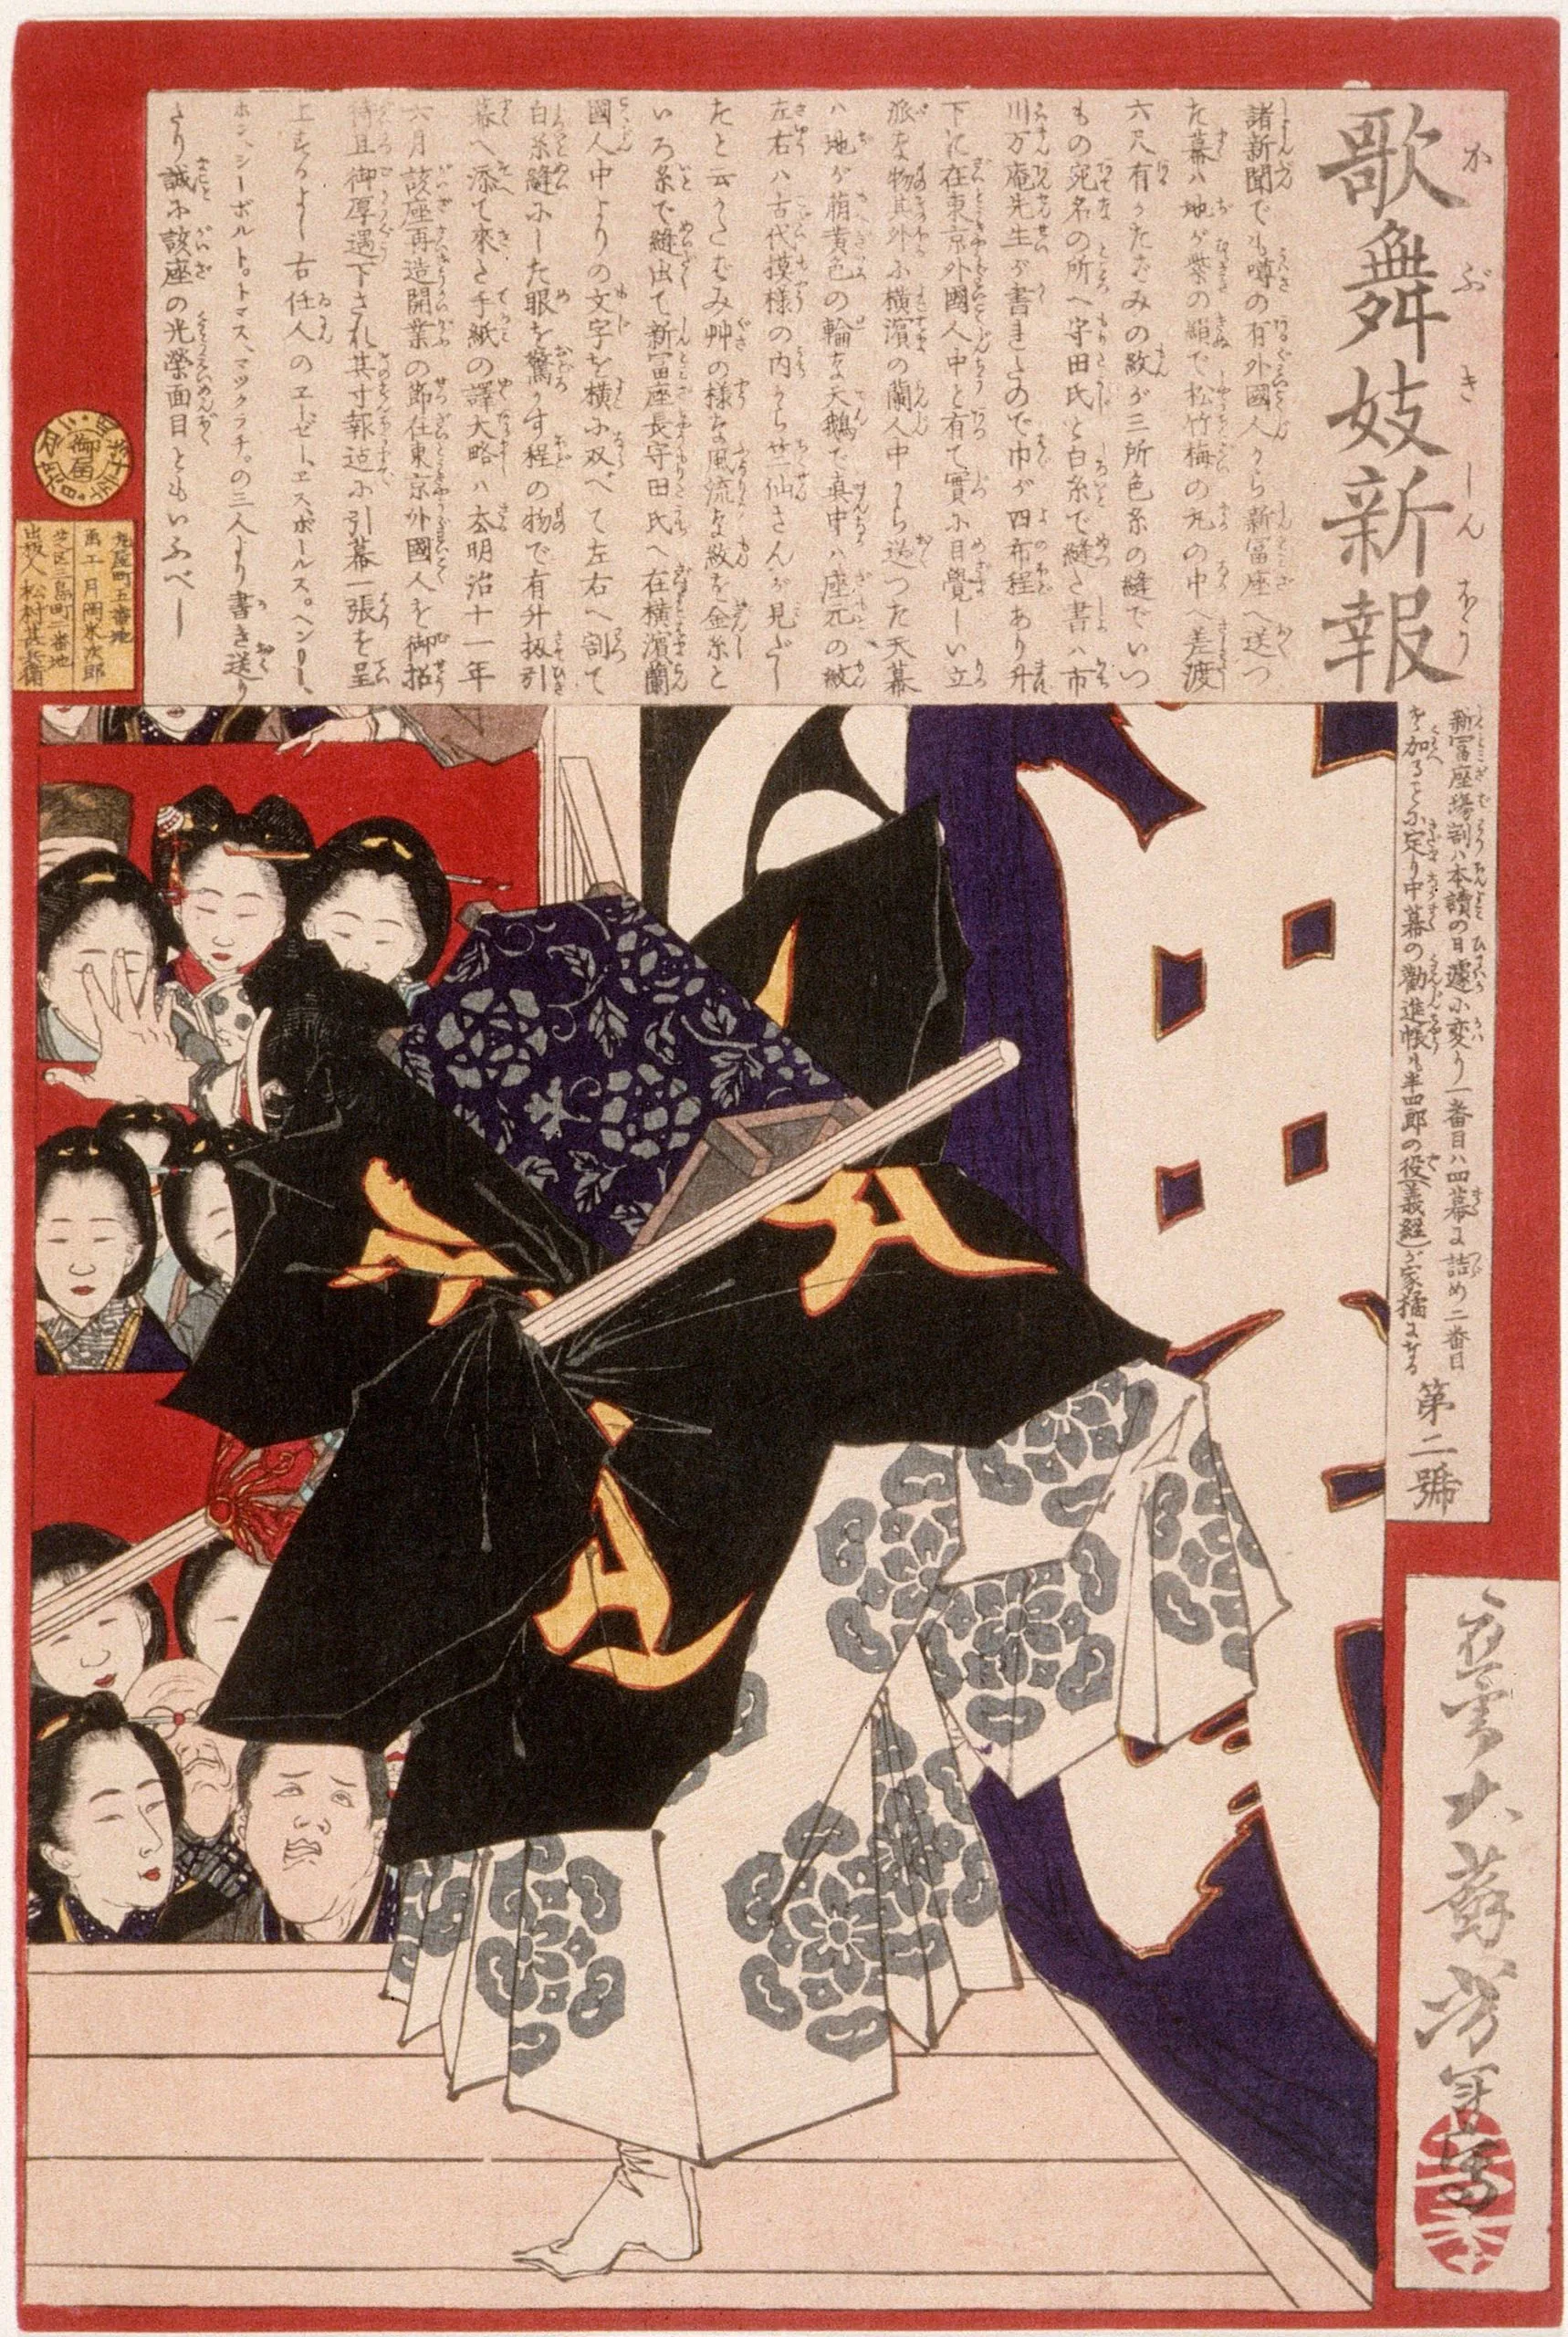 歌舞妓新報
かぶきしんぱう
新富座場割ハ本讀の日遽に変り一番目ハ四幕に詰め二番目
を加ることに定り中幕の勸進帳ハ半四郎の役義経が家橘になる
第二號
諸新聞でも噂の有外國人から新富座へ送つ
た幕ハ地が紫の絹で松竹梅の丸の中へ差渡
六尺有かたばみの紋が三所色糸の縫でいつ
もの宛名の所へ守田氏と白糸で縫た書ハ市
川万庵先生が書きしので巾が四布程あり升
下に在東京外國人中と有て實に目覺しい立
派な物其外に横濱の蘭人中から送つた天幕
ハ地が萠黄色の輪な天鵞で真中ハ座元の紋
左右ハ古代摸様の内から廿一仙さんが見だし
たと云かたばみ艸の様な風流な紋を金糸と
いろ糸で縫出て新富座長守田氏へ在横濱蘭
國人中よりの文字を横に双べて左右へ割て
白糸縫にした眼を驚かす程の物で有升扨引
幕へ添て來た手紙の譯大略ハ本明治十一年
六月該座再造開業の節在東京外國人を御招
待且御厚遇下され其寸報迠に引幕一張を呈
上するよし右任人のヱーゼー、ヱス、ボールス。ヘンリー、
ホン、シーボルト。トマス、マックラチ。の三人より書き送り
たり誠に該座の光榮面目ともいふべし
御届
明治十二年
月 日
丸屋町五番地
画工 月岡米次郎
芝区三島町二番地
出板人 松村甚兵衛
應需大蘇芳年寫